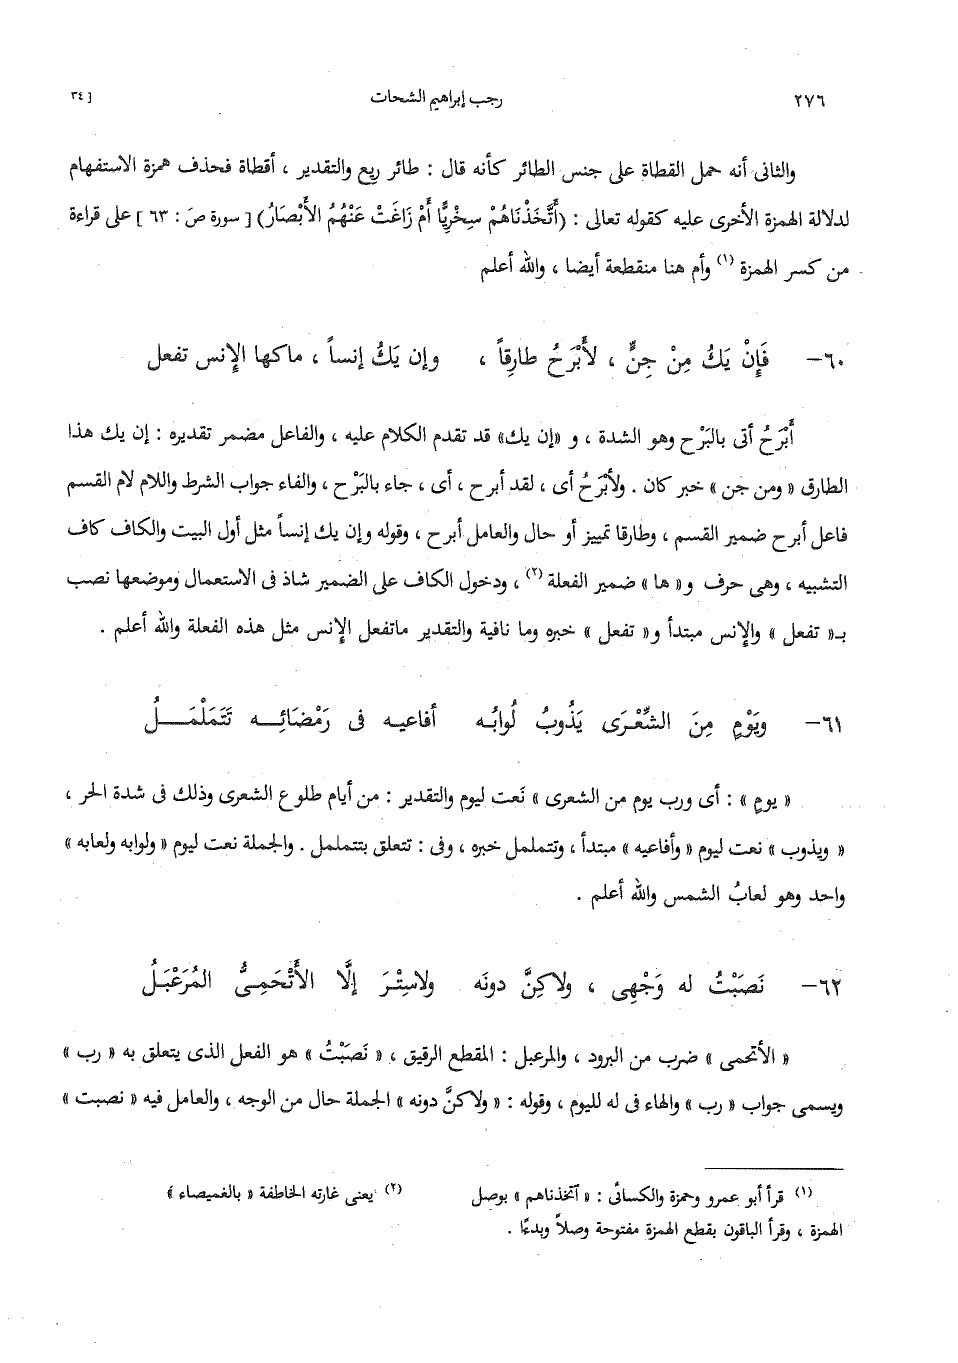 ٢٧٦ رجب إبراهيم الشحات [ ٣٤
والثانى أنه حمل القطاة على جنس الطائر كأنه قال : طائر ريع والتقدير ، أقطاة فحذف همزة الاستفهام
لدلالة الهمزة الأخرى عليه كقوله تعالى : (أَتَّخَذْنَاهُمْ سِخْرِيًّا أَمْ زَاغَتْ عَنْهُمُ الأَبْصَارُ) [ سورة صَ : ٦٣ ] على قراءة
من كسر الهمزة (١) وأم هنا منقطعة أيضا ، والله أعلم
٦٠– فَإِنْ يَكُ مِنْ جِنٍّ ، لأَبْرَحُ طارِقاً ، وإن يَكُ إنساً ، ماكها الإنس تفعل
أَبْرَحُ أتى بالبَرْح وهو الشدة ، و «إن يك» قد تقدم الكلام عليه ، والفاعل مضمر تقديره : إن يك هذا
الطارق « ومن جن » خبر كان . ولأبْرَحُ أى ، لقد أبرح ، أى ، جاء بالبَرْح ، والفاء جواب الشرط واللام لام القسم
فاعل أبرح ضمير القسم ، وطارقا تمييز أو حال والعامل أبرح ، وقوله وإن يك إنساً مثل أول البيت والكاف كاف
التشبيه ، وهى حرف و« ها » ضمير الفعلة (٢) ، ودخول الكاف على الضمير شاذ فى الاستعمال وموضعها نصب
بـ« تفعل » والإنس مبتدأ و« تفعل » خبره وما نافية والتقدير ماتفعل الإنس مثل هذه الفعلة والله أعلم .
٦١– ويَوْمٍ مِنَ الشِّعْرَى يَذُوبُ لُوابُه أفاعيه فى رَمْضَائِه تَتَمَلْمَلُ
« يوم » : أى ورب يوم من الشعرى » نَعت ليوم والتقدير : من أيام طلوع الشعرى وذلك فى شدة الحر ،
« ويذوب » نعت ليوم « وأفاعيه » مبتدأ ، وتتململ خبره ، وفى : تتعلق بتتململ . والجملة نعت ليوم « ولوابه ولعابه »
واحد وهو لعابُ الشمس والله أعلم .
٦٢– نَصَبْتُ له وَجْهِى ، ولاكِنَّ دونَه ولاسِتْرَ إلَّا الأَتْحَمِىُّ المُرَعْبَلُ
« الأتحمى » ضرب من البرود ، والمرعبل : المقطع الرقيق ، « نَصَبْتُ » هو الفعل الذى يتعلق به « رب »
ويسمى جواب « رب » والهاء فى له لليوم ، وقوله : « ولاكنَّ دونه » الجملة حال من الوجه ، والعامل فيه « نصبت »
(١) قرأ أبو عمرو وحمزة والكسائى : « آتخذناهم » بوصل
الهمزة ، وقرأ الباقون بقطع الهمزة مفتوحة وصلاً وبدءًا .
(٢) يعنى غارته الخاطفة « بالغميصاء »